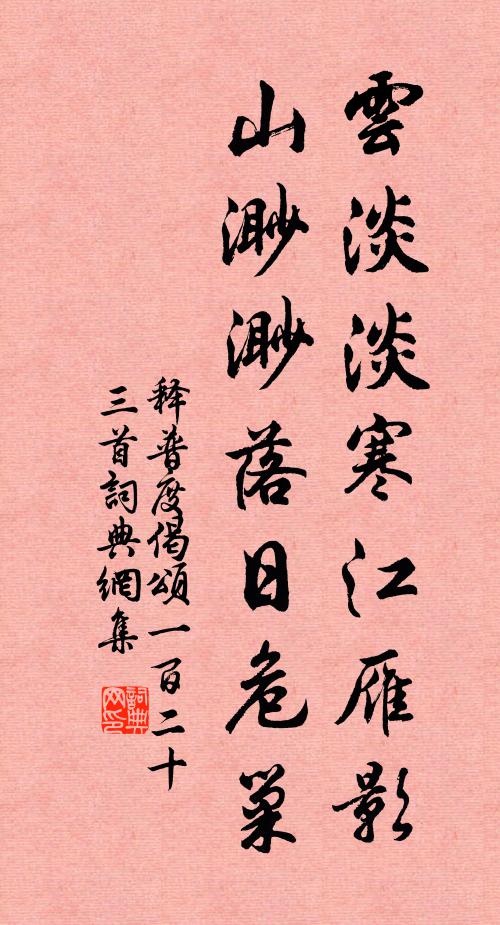 雲淡淡寒江雁影
山渺渺落日危巢
释普度偈頌一百二十
三首詞典網集
詞典网印